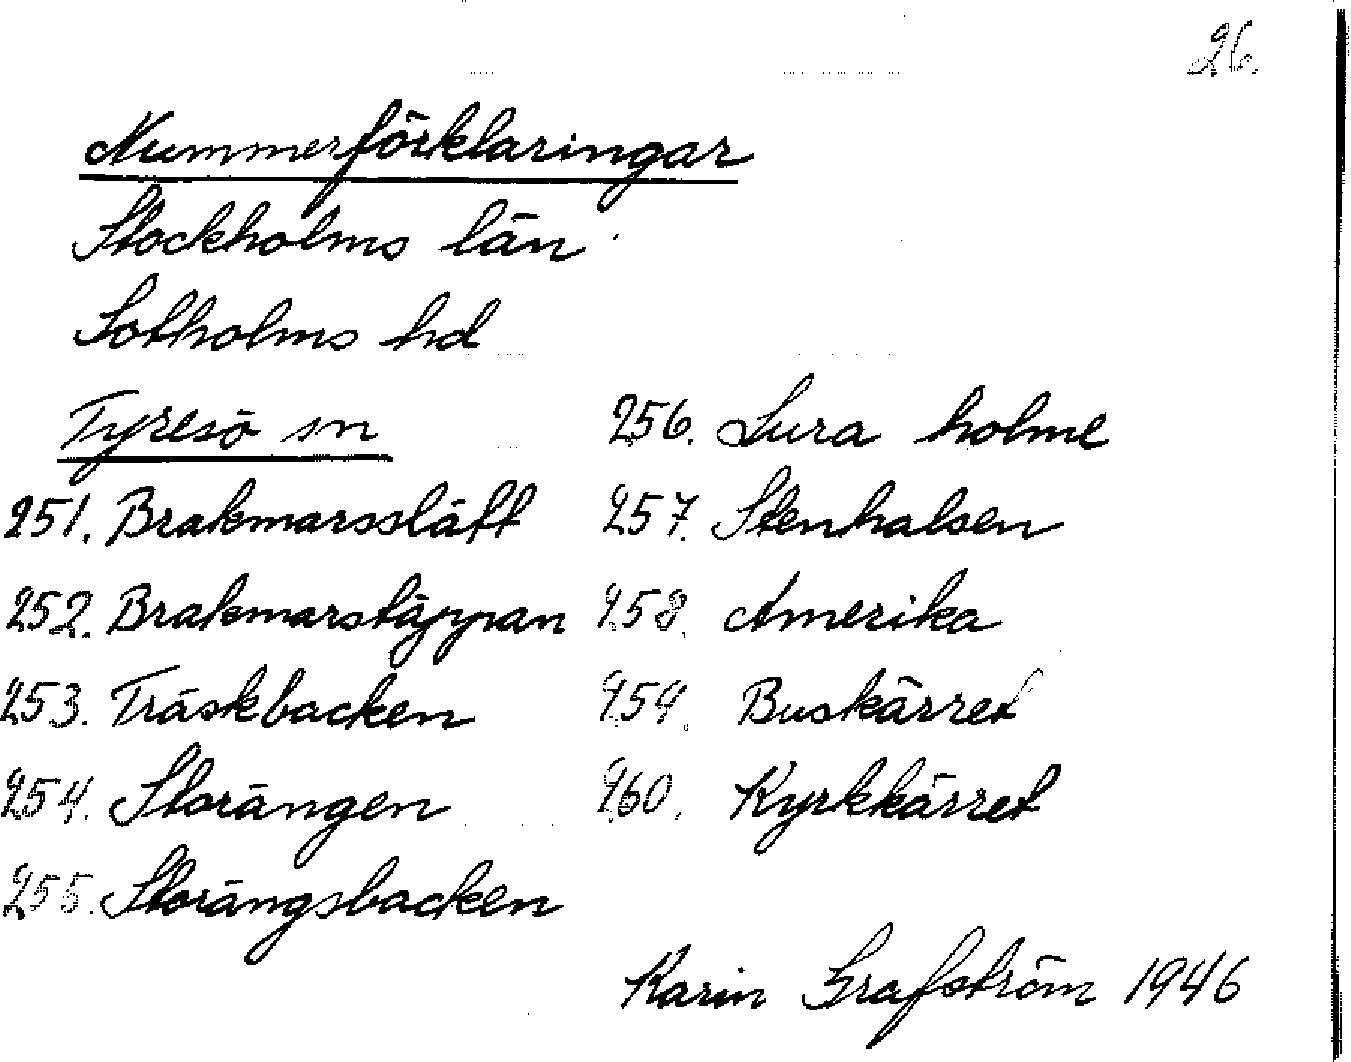 26.
Nummerförklaringar
Stockholms län
Sotholms hd
Tyresö sn
251. Brakmarsslätt
252. Brakmarstäppan
253. Träskbacken
254. Storängen
255. Storängsbacken
256. Lura holme
257. Stenhalsen
258. Amerika
259. Buskärret
260. Kyrkkärret
Karin Grafström 1946